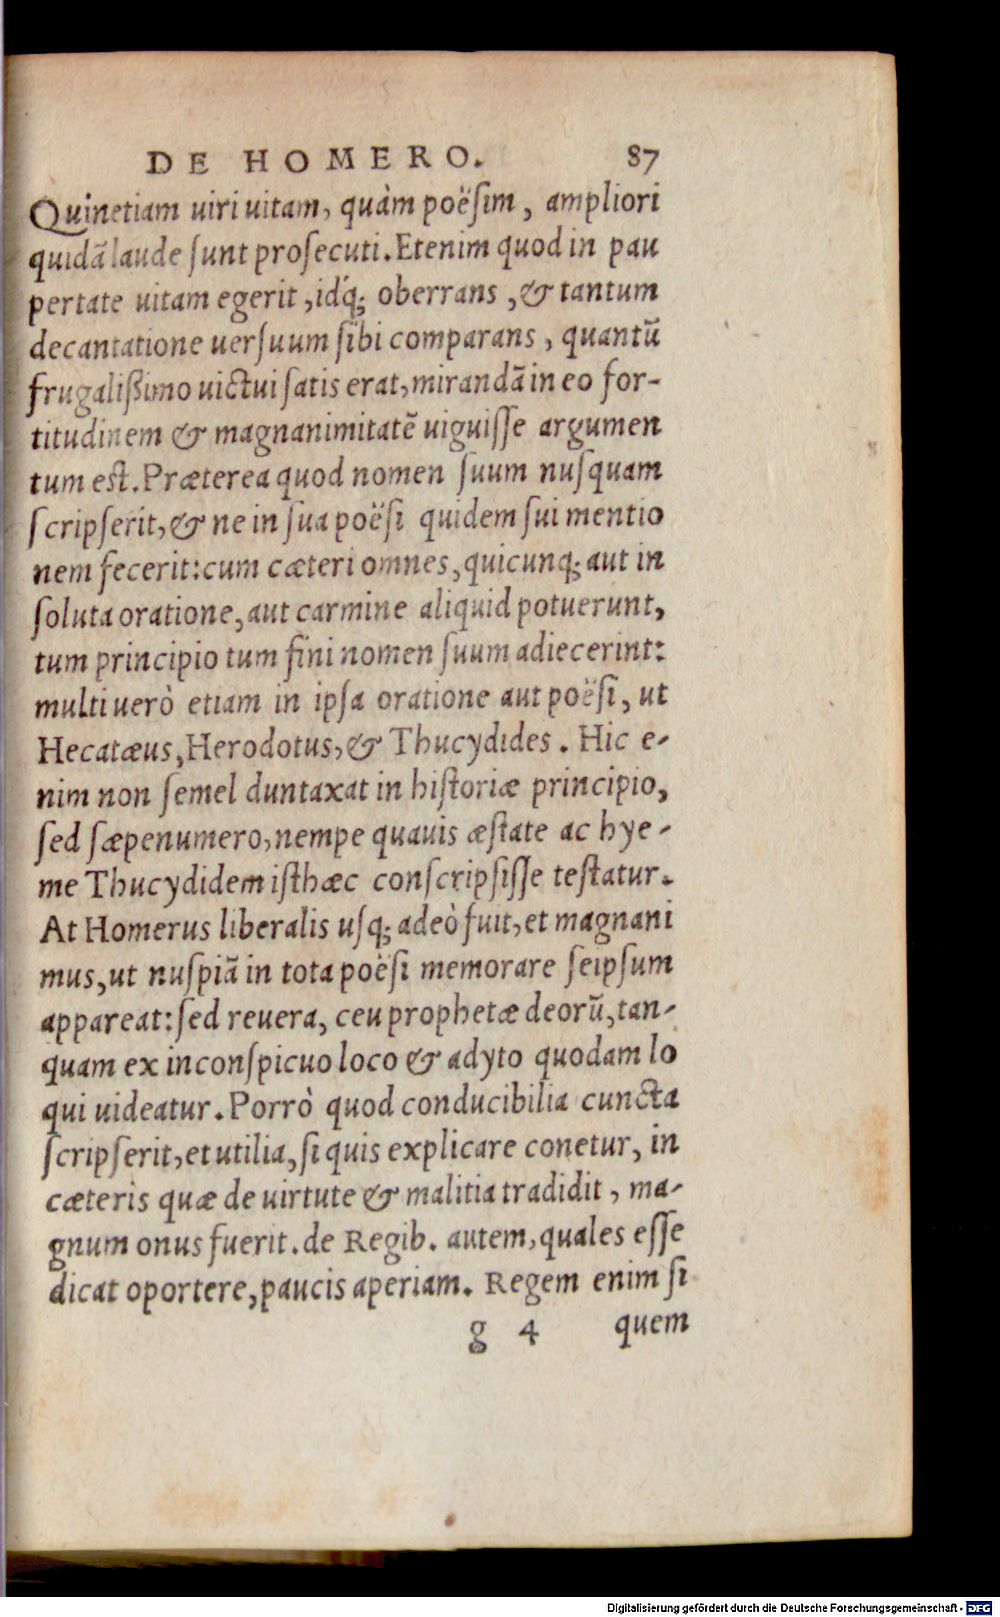 DE HOMERO. 87
Quinetiam uiri uitam, quàm poësim, ampliori
quidā laude sunt prosecuti. Etenim quod in pau
pertate uitam egerit, idq́; oberrans, & tantum
decantatione uersuum sibi comparans, quantū
frugalißimo uictui satis erat, mirandā in eo for-
titudinem & magnanimitatē uiguisse argumen
tum est. Præterea quod nomen suum nusquam
scripserit, & ne in sua poësi quidem sui mentio
nem fecerit: cum cæteri omnes, quicunq; aut in
soluta oratione, aut carmine aliquid potuerunt,
tum principio tum fini nomen suum adiecerint:
multi uerò etiam in ipsa oratione aut poësi, ut
Hecatæus, Herodotus, & Thucydides. Hic e-
nim non semel duntaxat in historiæ principio,
sed sæpenumero, nempe quauis æstate ac hye-
me Thucydidem isthæc conscripsisse testatur.
At Homerus liberalis usq; adeò fuit, et magnani
mus, ut nuspiā in tota poësi memorare seipsum
appareat: sed reuera, ceu prophetæ deorū, tan-
quam ex inconspicuo loco & adyto quodam lo
qui uideatur. Porrò quod conducibilia cuncta
scripserit, et utilia, si quis explicare conetur, in
cæteris quæ de uirtute & malitia tradidit, ma-
gnum onus fuerit. de Regib. autem, quales esse
dicat oportere, paucis aperiam. Regem enim si
g 4 quem
Digitalisierung gefördert durch die Deutsche Forschungsgemeinschaft - DFG